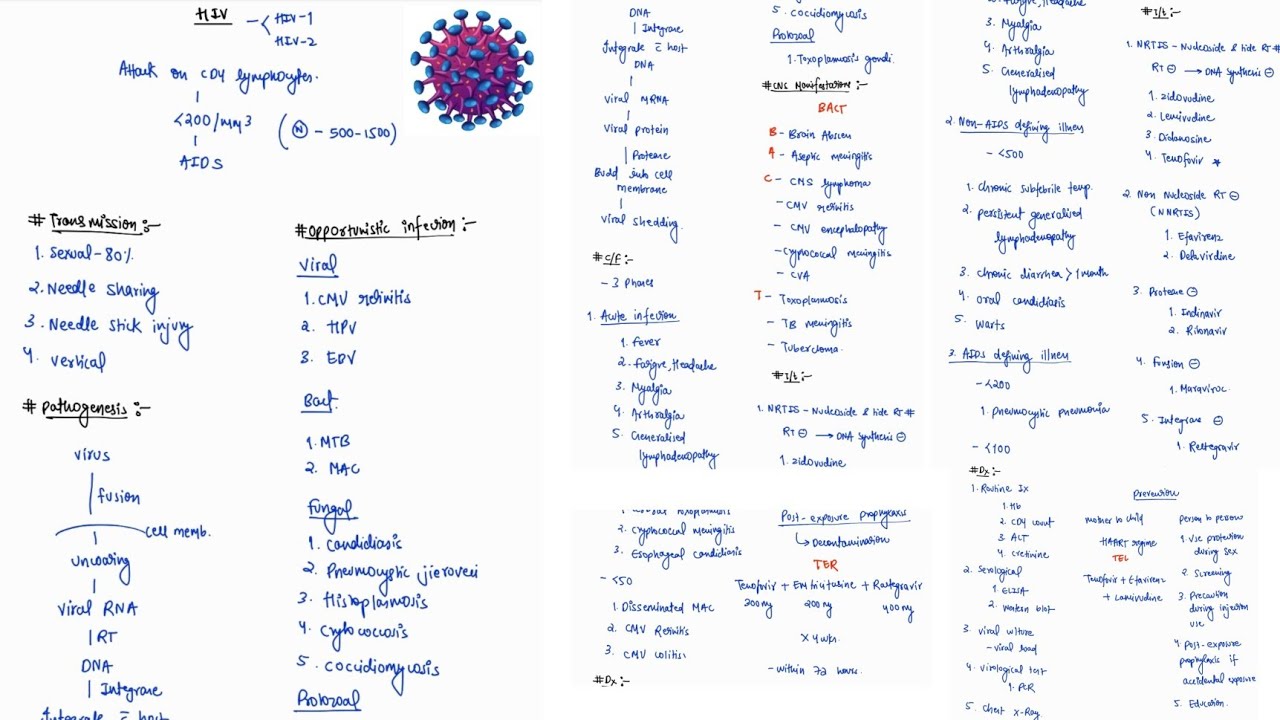 HIV
HIV-1
HIV-2
Attack on CD4 lymphocytes.
<200/mm³ (N - 500-1500)
AIDS
# Transmission :-
1. Sexual - 80%
2. Needle sharing
3. Needle stick injury
4. Vertical
# Pathogenesis :-
virus
fusion
cell memb.
uncoaring
Viral RNA
RT
DNA
Integrase
Integrate c̄ host
#Opportunistic infecrion :-
Viral
1. CMV retinitis
2. HPV
3. EBV
Bact.
1. MTB
2. MAC
Fungal
1. Candidiasis
2. Pneumocystic jieroveci
3. Histoplasmosis
4. Crytococcosis
5. Coccidiomycosis
Protozoal
DNA
Integrase
Integrate c̄ host
DNA
Viral mRNA
Viral protein
Protease
Budd into cell
membrane
Viral shedding
# C/F :-
- 3 Phases
1. Acute infecrion
1. Fever
2. Fatigue, Headache
3. Myalgia
4. Arthralgia
5. Generalised
lymphadenopathy
5. Coccidiomycosis
Protozoal
1. Toxoplasmosis gondi.
#CNS Manifestations :-
BACT
B - Brain Abscess
A - Aseptic meningitis
C - CNS lymphoma
- CMV retinitis
- CMV encephalopathy
- Cryptococcal meningitis
- CVA
T - Toxoplasmosis
- TB meningitis
- Tubercloma.
# T/t :-
1. NRTIS - Nucleoside & tide RT #
RT ⊖ → DNA synthesis ⊖
1. Zidovudine
2. Cryptococcal meningitis
3. Esophageal candidiasis
- <50
1. Disseminated MAC
2. CMV Retinitis
3. CMV colitis
#Dx :-
Post-exposure prophylaxis
Decontamination
TER
Tenofovir + Emtricitabine + Raltegravir
300mg 200mg 400mg
x 4 wks.
- within 72 hours.
2. Fatigue, Headache
3. Myalgia
4. Arthralgia
5. Generalised
lymphadenopathy
2. Non-AIDS defining illness
- <500
1. Chronic subfebrile temp.
2. Persistent generalised
lymphadenopathy
3. Chronic diarrhea > 1 month
4. Oral candidiasis
5. Warts
3. AIDS defining illness
- <200
1. Pneumocystic pneumonia
- <100
# T/t :-
1. NRTIS - Nucleoside & tide RT #
RT ⊖ → DNA synthesis ⊖
1. Zidovudine
2. Lamivudine
3. Didanosine
4. Tenofovir *
2. Non Nucleoside RT ⊖
(NNRTIS)
1. Efavirenz
2. Delavirdine
3. Protease ⊖
1. Indinavir
2. Ritonavir
4. Fusion ⊖
1. Maraviroc
5. Integrase ⊖
1. Raltegravir
#Dx :-
1. Routine Ix
1. Hb
2. CD4 count
3. ALT
4. Cretinine
2. Serological
1. ELISA
2. Western blot
3. Viral culture
- Viral load
4. Virological test
1. PCR
5. Chest X-Ray
Prevention
mother to child
HAART regime
TEL
Tenofovir + Efavirenz
+ Lamivudine
person to person
1. Use protection
during sex
2. Screening
3. Precaution
during injection
use
4. Post-exposure
prophylaxis if
accidental exposure
5. Education.